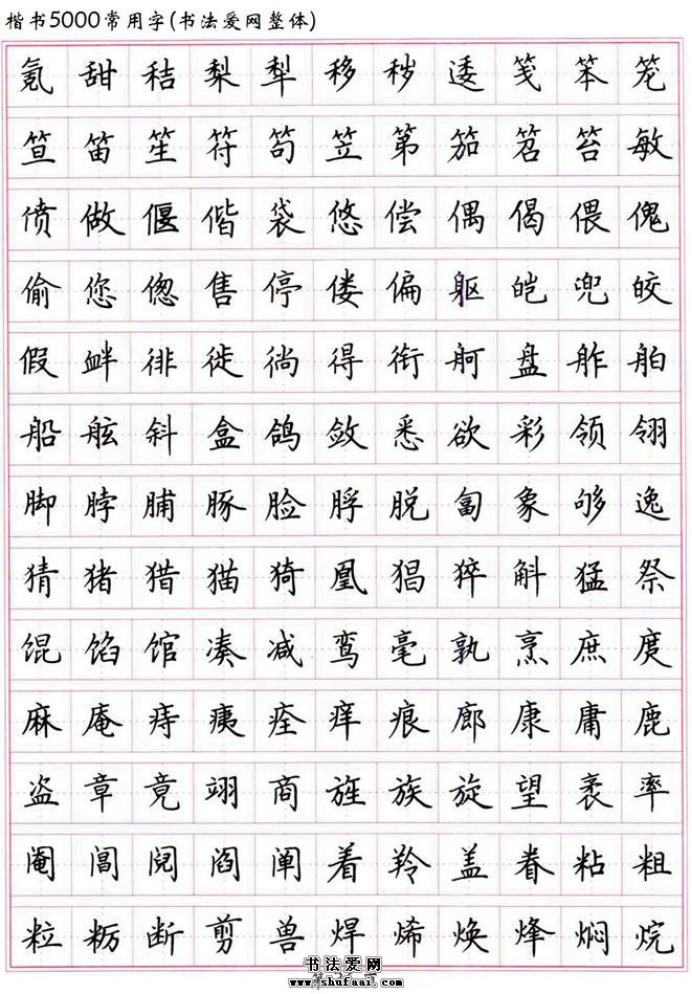 楷书5000常用字(书法爱网整体)
氪甜秸梨犁移秽逶笺笨笼
笪笛笙符笱笠第笳笤笞敏
偾做偃偕袋悠偿偶偈偎傀
偷您偬售停偻偏躯皑兜皎
假衅徘徙徜得衔舸盘舴舶
船舷斜盒鸽敛悉欲彩领翎
脚脖脯豚脸脬脱匐象够逸
猜猪猎猫猗凰猖猝斛猛祭
馄馅馆凑减鸾毫孰烹庶庹
麻庵痔痍痊痒痕廊康庸鹿
盗章竟翊商旌族旋望袤率
阉阊阋阎阐着羚盖眷粘粗
粒粝断剪兽焊烯焕烽焖烷
书法爱网
www.shufaai.com